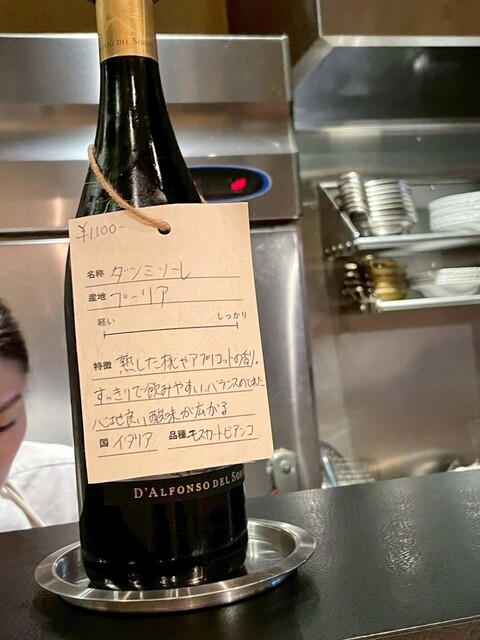 D'ALFONSO DEL SORDO
¥1,100-
名称 ダンミソーレ
産地 プーリア
軽い しっかり
特徴 熟した桃やアプリコットの香り。
すっきりで飲みやすい、バランスのとれた
心地良い酸味が広がる
国 イタリア 品種 モスカートビアンコ
D'ALFONSO DEL SOR